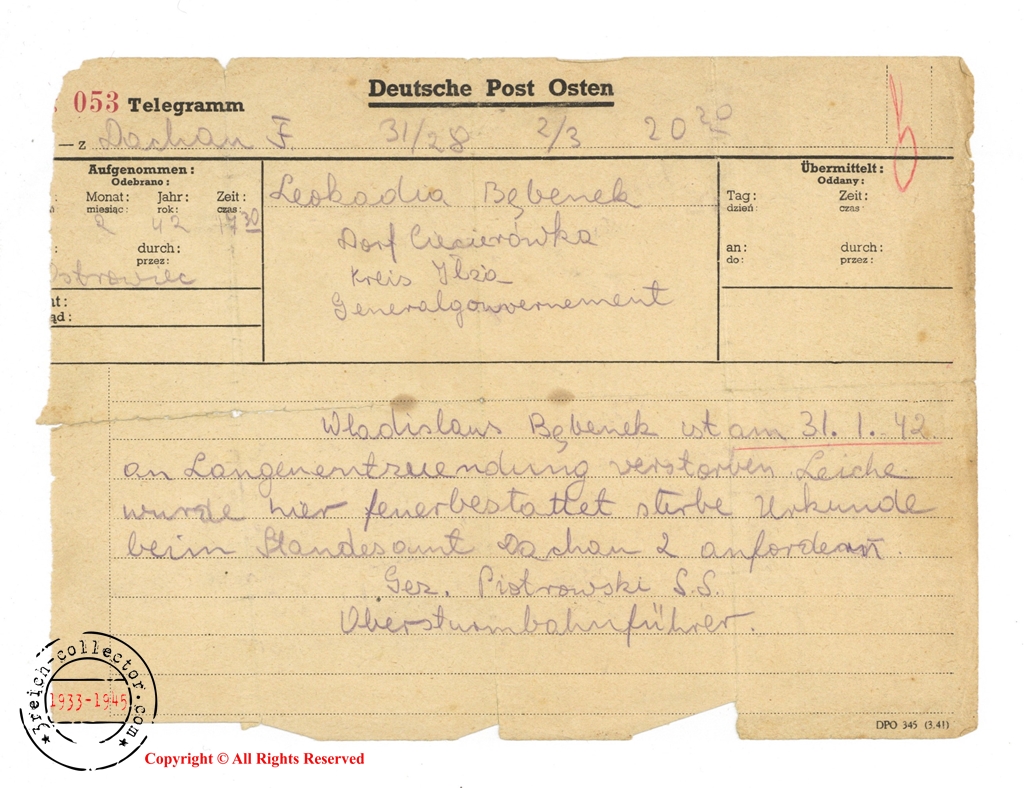 053 Telegramm
Deutsche Post Osten
— z Dachau F. 31/28 2/3 20 30
Aufgenommen:
Odebrano:
Monat: Jahr: Zeit:
miesiąc: rok: czas:
2 42 17 30
durch:
przez:
Ostrowiec
Leokadia Bębenek
Dorf Ciecierówka
Kreis Ilza
Generalgouvernement
Übermittelt:
Oddany:
Tag: Zeit:
dzień: czas:
an: durch:
do: przez:
Władislaus Bębenek ist am 31. 1. 42
an Langenentzuendung verstorben Leiche
wurde hier feuerbestattet sterbe Urkunde
beim Standesamt Dachau 2 anfordern.
Gez. Piotrowski S.S.
Obersturmbahnführer.
DPO 345 (3.41)
3reich-collector.com
1933-1945
Copyright © All Rights Reserved